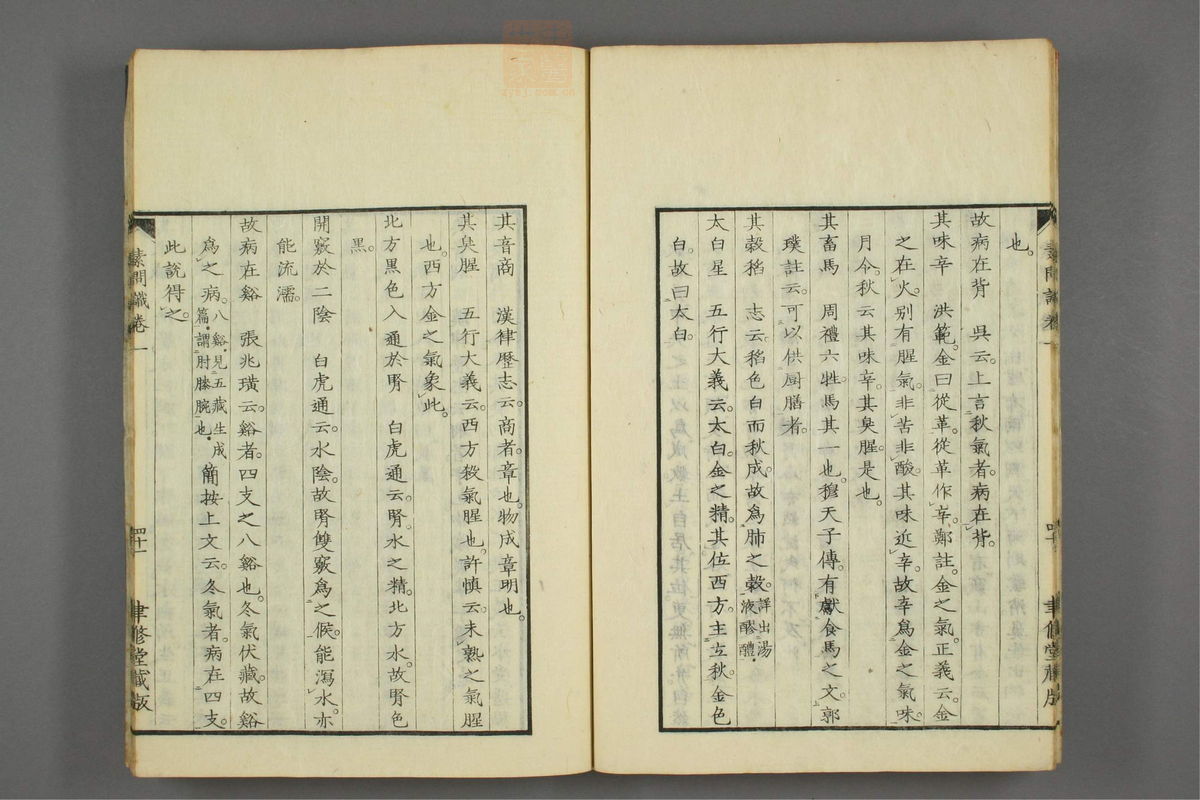 也。
故病在背　吳云。上言秋氣者。病在背。
其味辛　洪範。金曰從革。從革作辛。鄭註。金之氣。正義云。金
之在火。別有腥氣。非苦非酸。其味近辛。故辛爲金之氣味。
月令。秋云其味辛。其臭腥。是也。
其畜馬　周禮六牲。馬其一也。穆天子傳。有獻食馬之文。郭
璞註云。可以供厨膳者。
其穀稻　志云。稻色白而秋成。故爲肺之穀。詳出湯液醪醴。
太白星　五行大義云。太白。金之精。其位西方。主立秋。金色
白。故曰太白。
素問識卷一
四十
聿修堂藏版
其音商　漢律歷志云。商者。章也。物成章明也。
其臭腥　五行大義云。西方殺氣腥也。許慎云。未熟之氣腥
也。西方金之氣象此。
北方黑色入通於腎　白虎通云。腎。水之精。北方水。故腎色
黑。
開竅於二陰　白虎通云。水陰。故腎雙竅爲之候。能瀉水。亦
能流濡。
故病在谿　張兆璜云。谿者。四支之八谿也。冬氣伏藏。故谿
爲之病。八谿。見五藏生成篇。謂肘膝腕也。簡按上文云。冬氣者。病在四支。
此說得之。
素問識卷一
四十一
聿修堂藏版